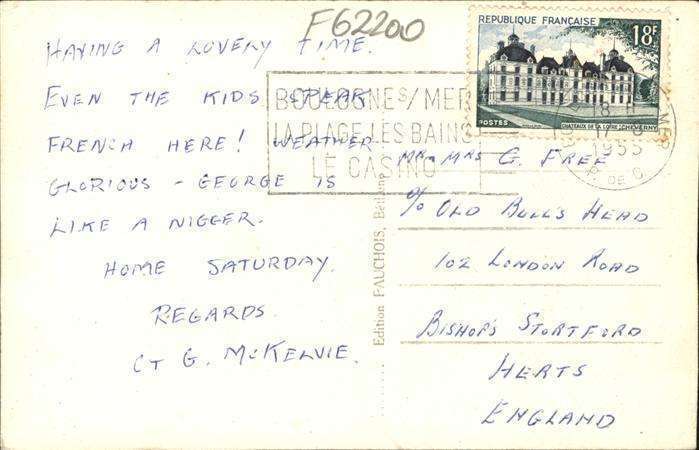 F62200
HAVING A LOVELY TIME.
EVEN THE KIDS SPEAK
FRENCH HERE! WEATHER
GLORIOUS - GEORGE IS
LIKE A NIGGER.
HOME SATURDAY.
REGARDS.
G. McKELVIE.
BOULOGNE S/MER
LA PLAGE LES BAINS
LE CASINO
REPUBLIQUE FRANÇAISE
18F
POSTES
CHATEAUX DE LA LOIRE: CHEVERNY
18
1955
P. DE C.
Edition FAUCHOIS,
MR & MRS G. FREE
c/o OLD BULL'S HEAD
102 LONDON ROAD
BISHOP'S STORTFORD
HERTS
ENGLAND